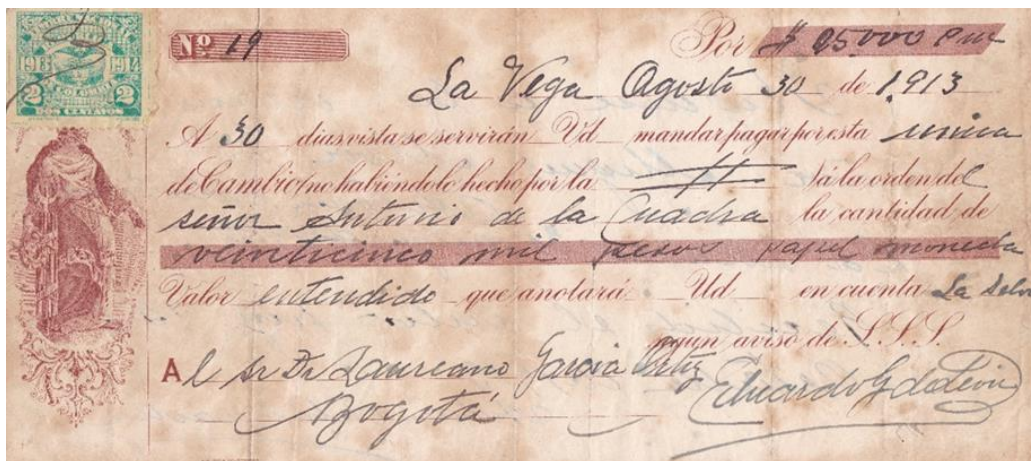 1913 1914
COLOMBIA
2 2
DOS CENTAVOS
Nº 19
Por $ 25000 P m
La Vega Agosto 30 de 1.913
A 30 dias vista se servirán Ud mandar pagar por esta unica
de Cambio (no habiéndolo hecho por la # ) á la orden del
señor Antonio de la Cuadra la cantidad de
veinticinco mil pesos papel moneda
Valor entendido que anotará Ud en cuenta La Selva
según aviso de S.S.S.
Al Sr Dr Laureano Garcia Ortiz
Eduardo G de Leon
Bogotá